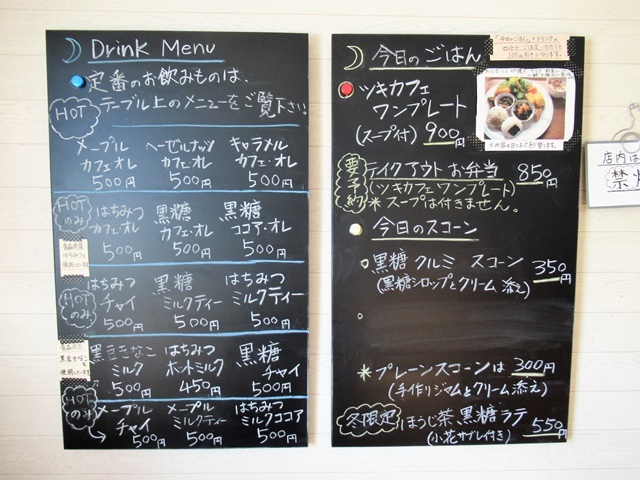 Drink Menu
定番のお飲みものは、
テーブル上のメニューをご覧下さい!!
HOT
メープル ヘーゼルナッツ キャラメル
カフェオレ カフェ・オレ カフェ・オレ
500円 500円 500円
HOTのみ
はちみつ 黒糖 黒糖
カフェ・オレ カフェ・オレ ココア・オレ
500円 500円 500円
はちみつ
使用しています
HOTのみ
はちみつ 黒糖 はちみつ
チャイ ミルクティー ミルクティー
500円 500円 500円
黒豆きなこ はちみつ 黒糖
ミルク ホットミルク チャイ
500円 450円 500円
黒豆きなこを
使用しています
HOTのみ
メープル メープル はちみつ
チャイ ミルクティー ミルクココア
500円 500円 500円
今日のごはん
「今日のごはん」+ドリンクの
100円引きになります。
ツキカフェ
ワンプレート
(スープ付) 900円
要予約
テイクアウト お弁当 850円
(ツキカフェワンプレート)
*スープは付きません。
今日のスコーン
黒糖 クルミ スコーン 350円
(黒糖シロップとクリーム添え)
*プレーンスコーンは 300円
(手作りジャムとクリーム添え)
冬限定 ほうじ茶 黒糖ラテ 550円
(小花サブレ付き)
店内は